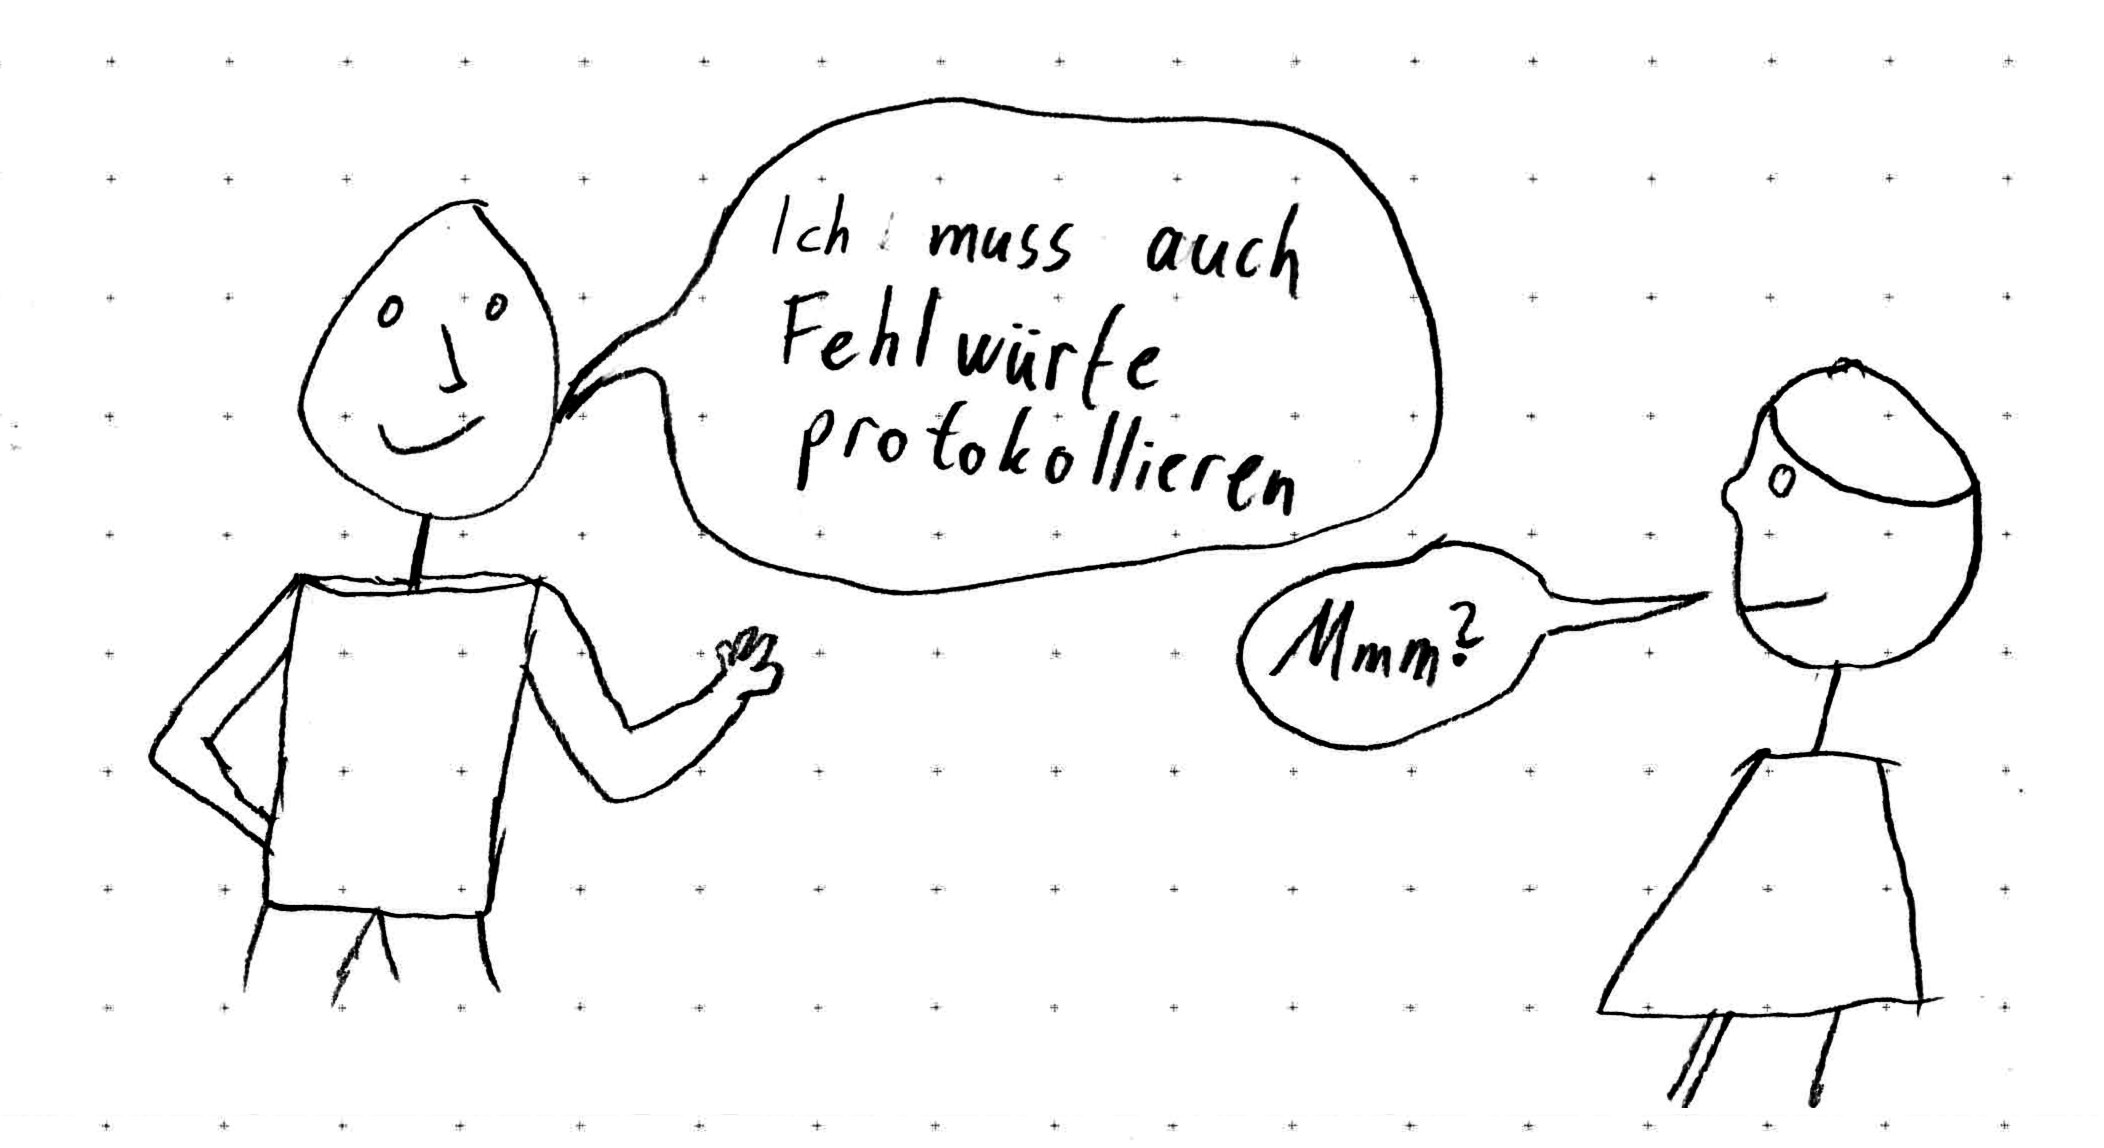 Ich muss auch
Fehlwürfe
protokollieren
Mmm?